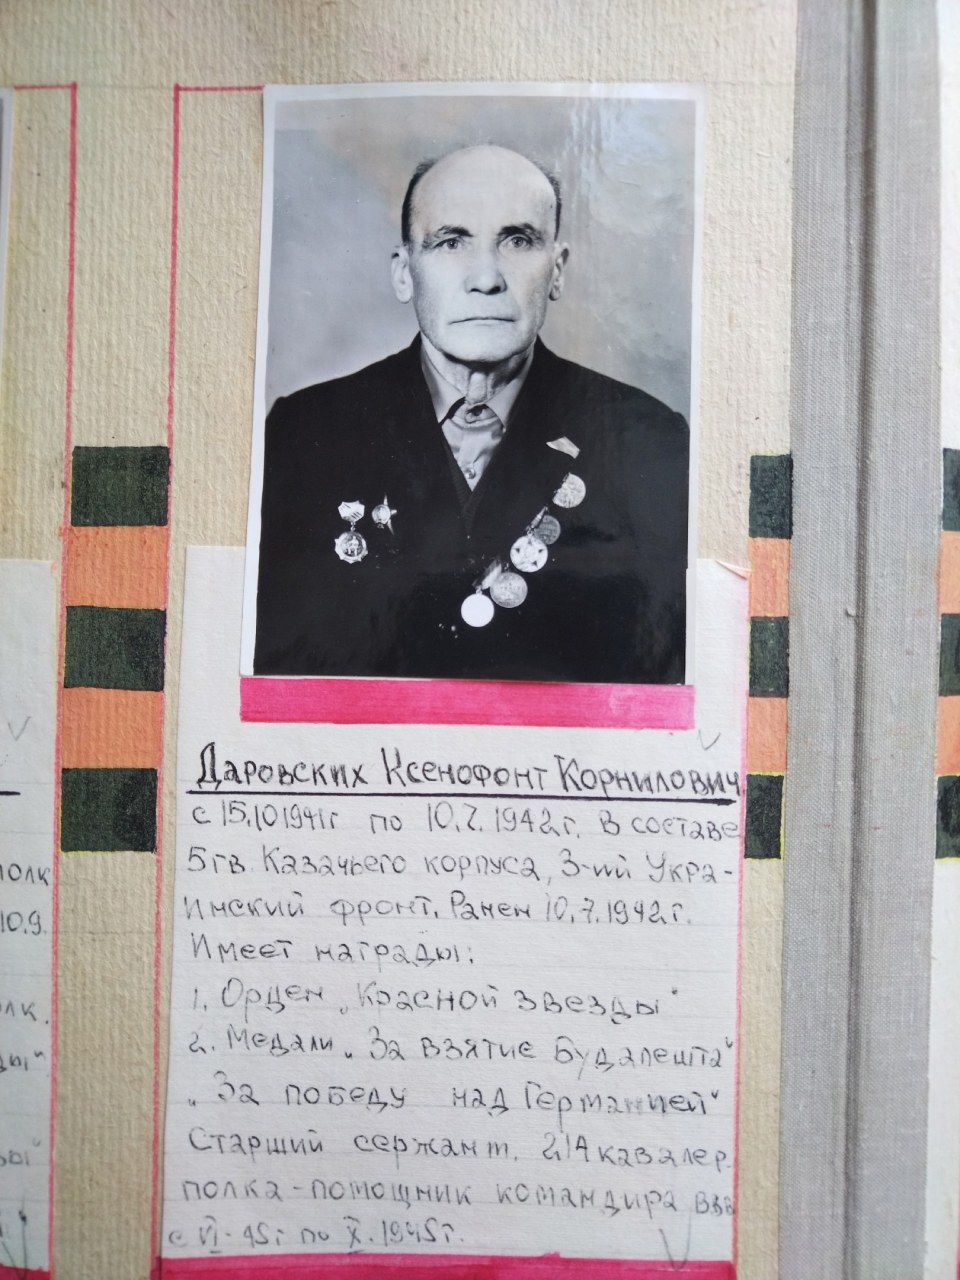 Даровских Ксенофонт Корнилович
с 15.10 1941г по 10.7.1942г. в составе
5гв. Казачьего корпуса, 3-ий Укра-
инский фронт. Ранен 10.7.1942г.
Имеет награды:
1. Орден „Красной звезды"
2. Медали „За взятие Будапешта"
„За победу над Германией"
Старший сержант. 214 кавалер.
полка-помощник командира взв
с VI-45г по X.1945г.
полк
10.9.
лк.
ды"
зы"